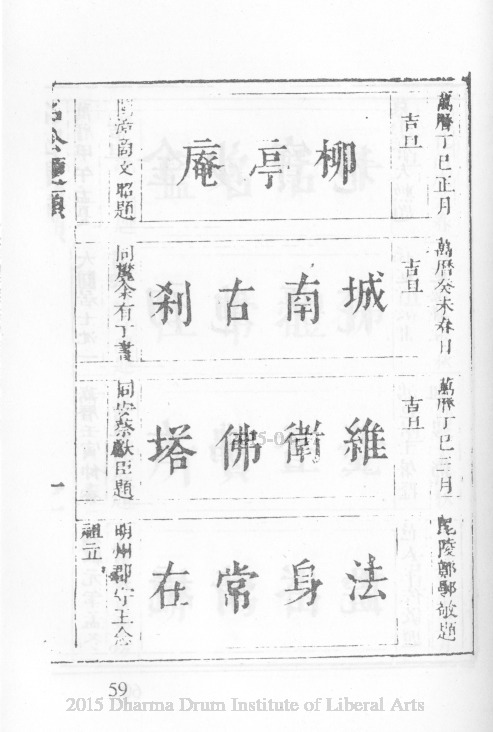 萬曆丁巳正月
吉旦
柳亭庵
漳商文昭題
萬曆癸未春日
吉旦
城南古刹
同麓余有丁書
萬曆丁巳三月
吉旦
維衛佛塔
同安蔡獻臣題
毘陵鄭鄤敬題
法身常在
明州郡守王念
祖立
名公匾額
一
59
2015 Dharma Drum Institute of Liberal Arts